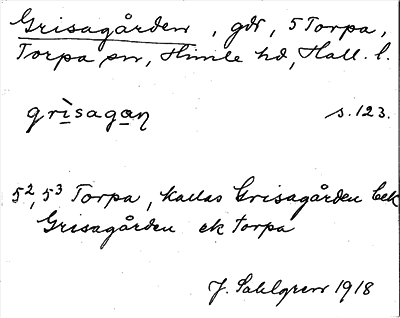 Grisagården, gdr, 5 Torpa,
Torpa sn, Himle hd, Hall. l.
grìsagaṇ s. 123.
5², 5³ Torpa, kallas Grisagården bek
Grisagården ek torpa
J. Sahlgren 1918